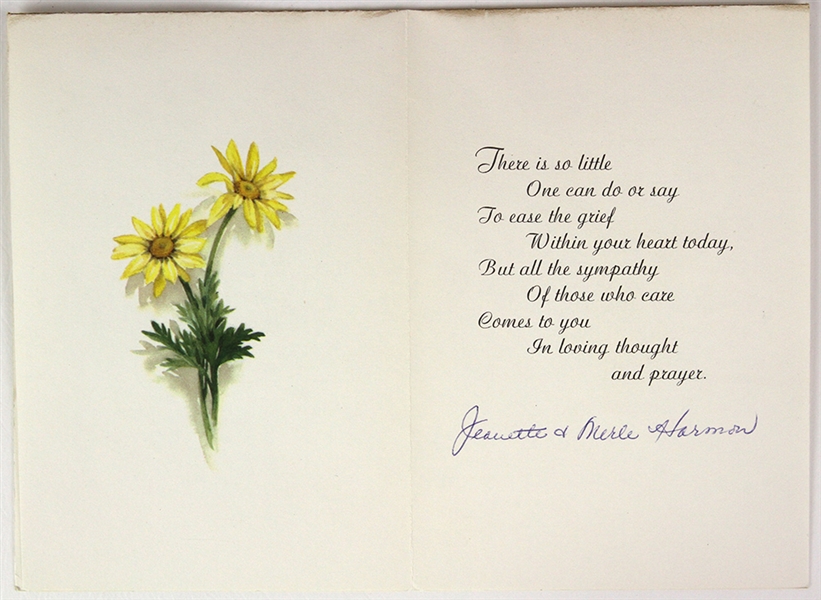 There is so little
One can do or say
To ease the grief
Within your heart today,
But all the sympathy
Of those who care
Comes to you
In loving thought
and prayer.
Jeanette & Merle Harmon